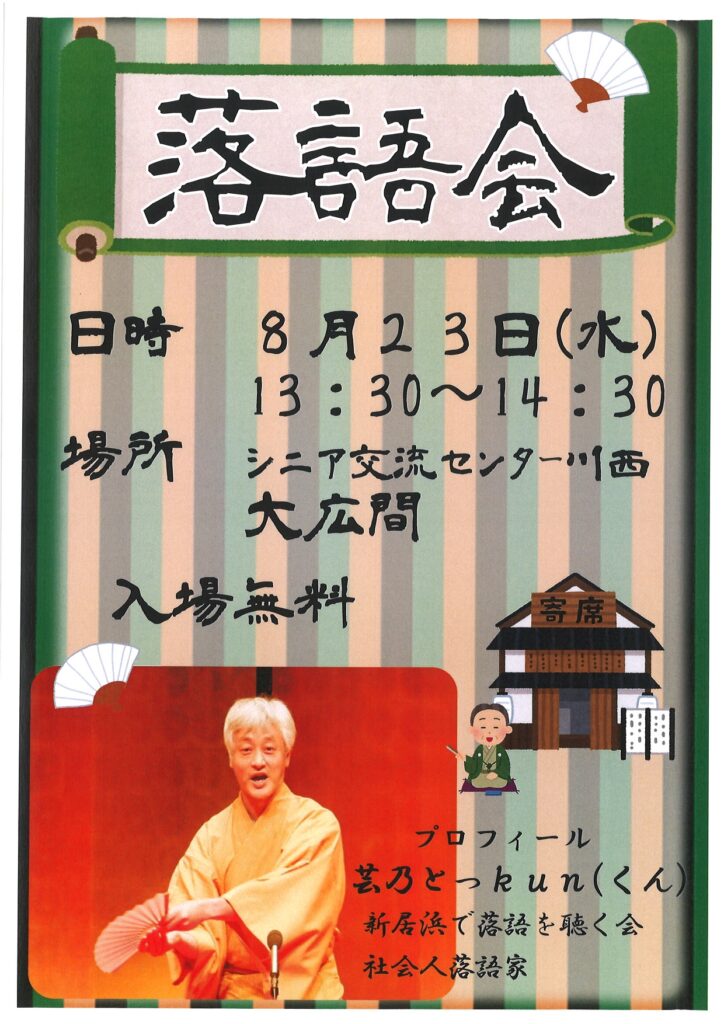 落語会
日時　８月２３日(水)
13：30～14：30
場所　シニア交流センター川西
大広間
入場無料
寄席
プロフィール
芸乃とっｋｕｎ(くん)
新居浜で落語を聴く会
社会人落語家